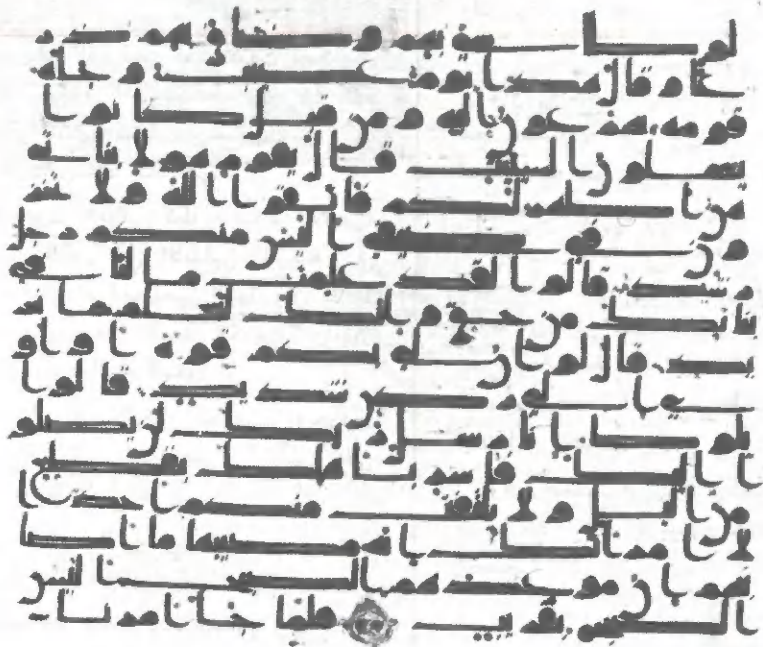 لوطا سي بهم وضاق بهم ذر
عا وقال هذا يوم عصيب وجاه
قومه يهرعون اليه ومن قبل كانوا
يعملون السيات قال يقوم هولا بنا
تي هن اطهر لكم فاتقوا الله ولا تخز
ون في ضيفي اليس منكم رجل
رشيد قالوا لقد علمت ما لنا في
بناتك من حق وانك لتعلم ما نر
يد قال لو ان لي بكم قوة او او
ي الى ركن شديد قالوا
يلوط انا رسل ربك لن يصلو
ا اليك فاسر باهلك بقطع
من اليل ولا يلتفت منكم احد ا
لا امراتك انه مصيبها ما اصا
بهم ان موعدهم الصبح اليس
الصبح بقريب فلما جا امرنا